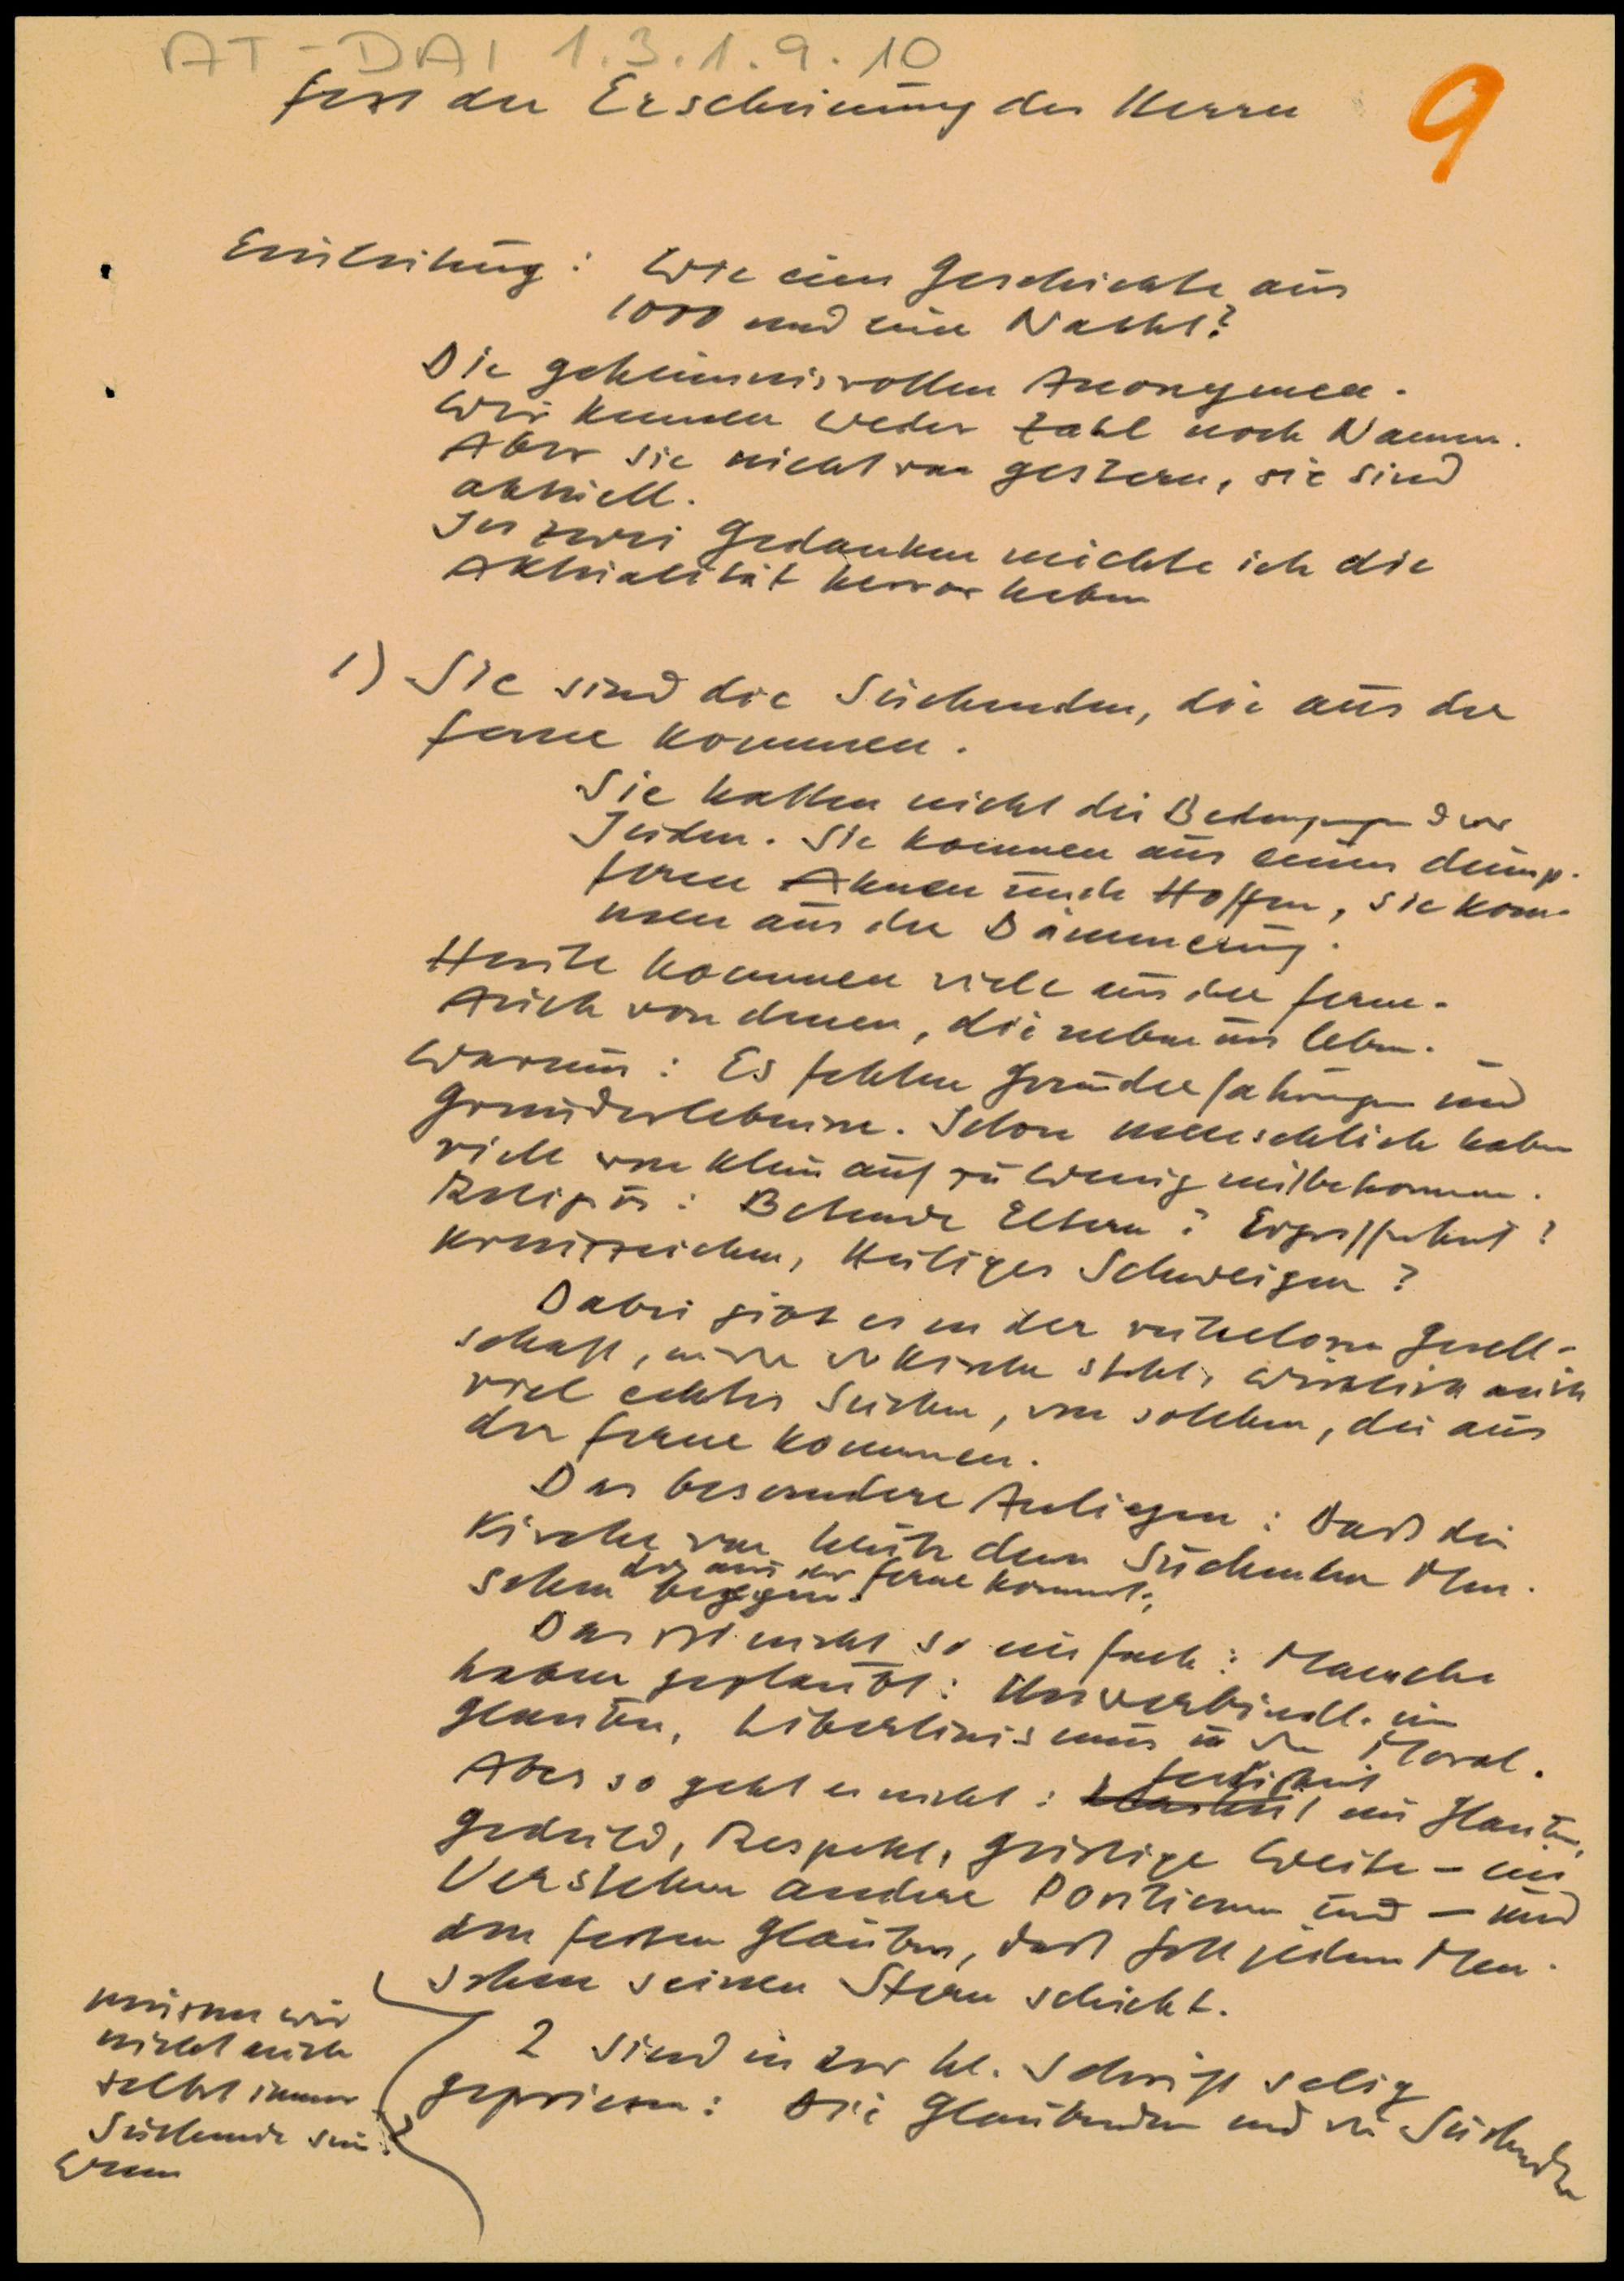 AT-DAI 1.3.1.9.10
Fest der Erscheinung des Herrn
9
Einleitung: Wie eine Geschichte aus
1000 und eine Nacht?
Die geheimnisvollen Anonymen.
Wir kennen weder Zahl noch Namen.
Aber sie nicht von gestern, sie sind
aktuell.
In zwei Gedanken möchte ich die
Aktualität hervorheben
1) Sie sind die Suchenden, die aus der
Ferne kommen.
Sie hatten nicht die Bedingungen der
Juden. Sie kommen aus einem dump-
feren Ahnen und Hoffen, sie kom-
men aus der Dämmerung.
Heute kommen viele aus der Ferne.
Auch von denen, die neben uns leben.
Warum: Es fehlen Grunderfahrungen und
Grunderlebnisse. Schon menschlich haben
viele von klein auf zu wenig mitbekommen.
Religiös: Betende Eltern? Ergriffenheit?
Kreuzzeichen, Heiliges Schweigen?
Dabei gibt es in der ruhelosen Gesell-
schaft, in der die Kirche steht, wirklich auch
viel echtes Suchen, von solchen, die aus
der Ferne kommen.
Das besondere Anliegen: Daß die
Kirche von heute dem suchenden Men-
schen der aus der Ferne kommt,
begegne.
Das ist nicht so einfach: Manche
haben geglaubt: Unverbindl. im
Glauben, Libertinismus in der Moral.
Aber so geht es nicht: Festigkeit im Glauben,
Geduld, Respekt, geistige Weite - ein
Verstehen anderer Positionen und - und
den festen Glauben, daß Gott jedem Men-
schen seinen Stern schickt.
2 sind in der hl. Schrift selig
gepriesen: Die Glaubenden und die Suchenden
müssen wir
nicht auch
selbst immer
Suchende sein?